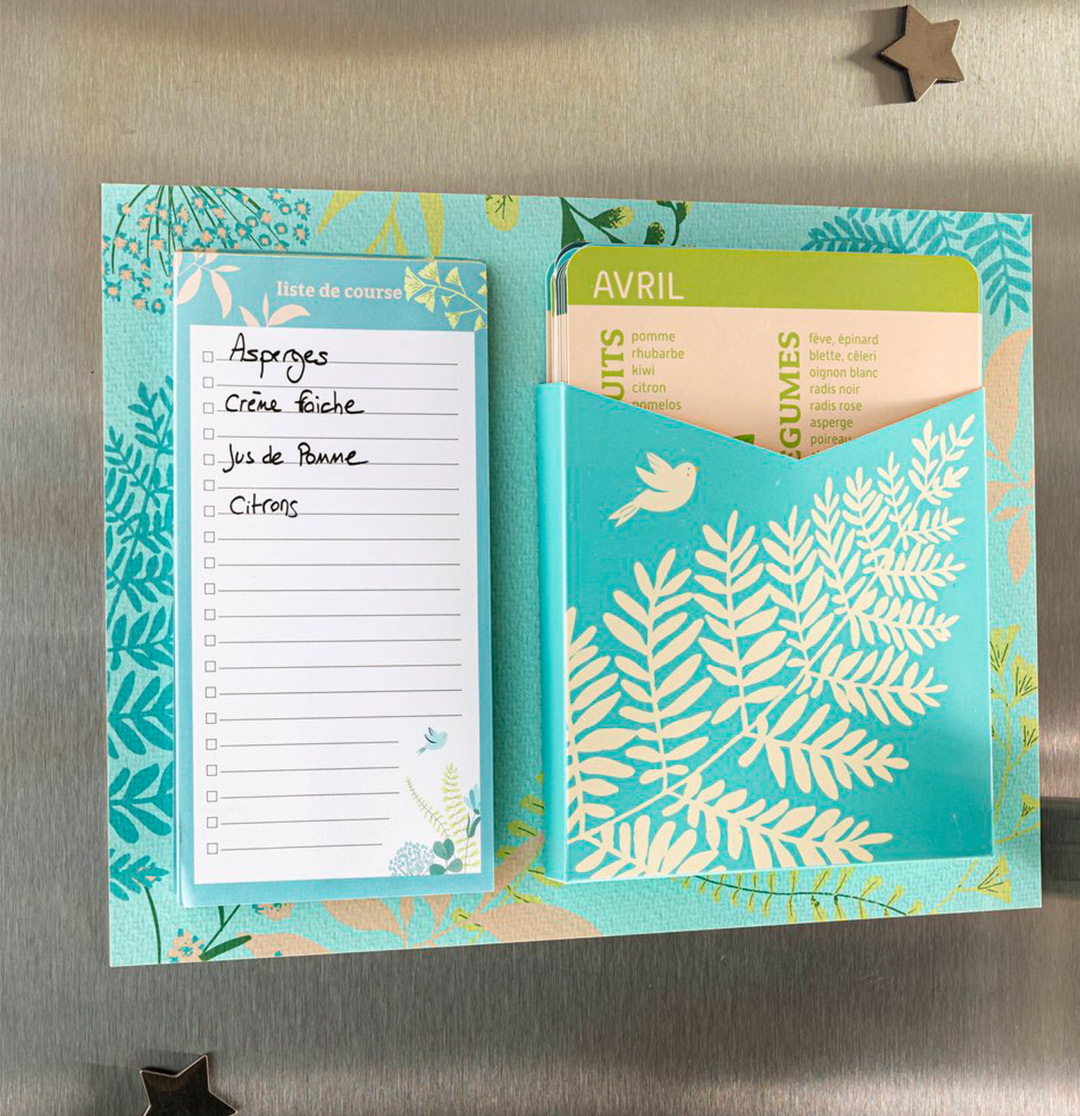 liste de course
Asperges
Crème fraiche
Jus de Pomme
Citrons
AVRIL
UITS
pomme
rhubarbe
kiwi
citron
pomelos
GUMES
fève, épinard
blette, cèleri
oignon blanc
radis noir
radis rose
asperge
poireau